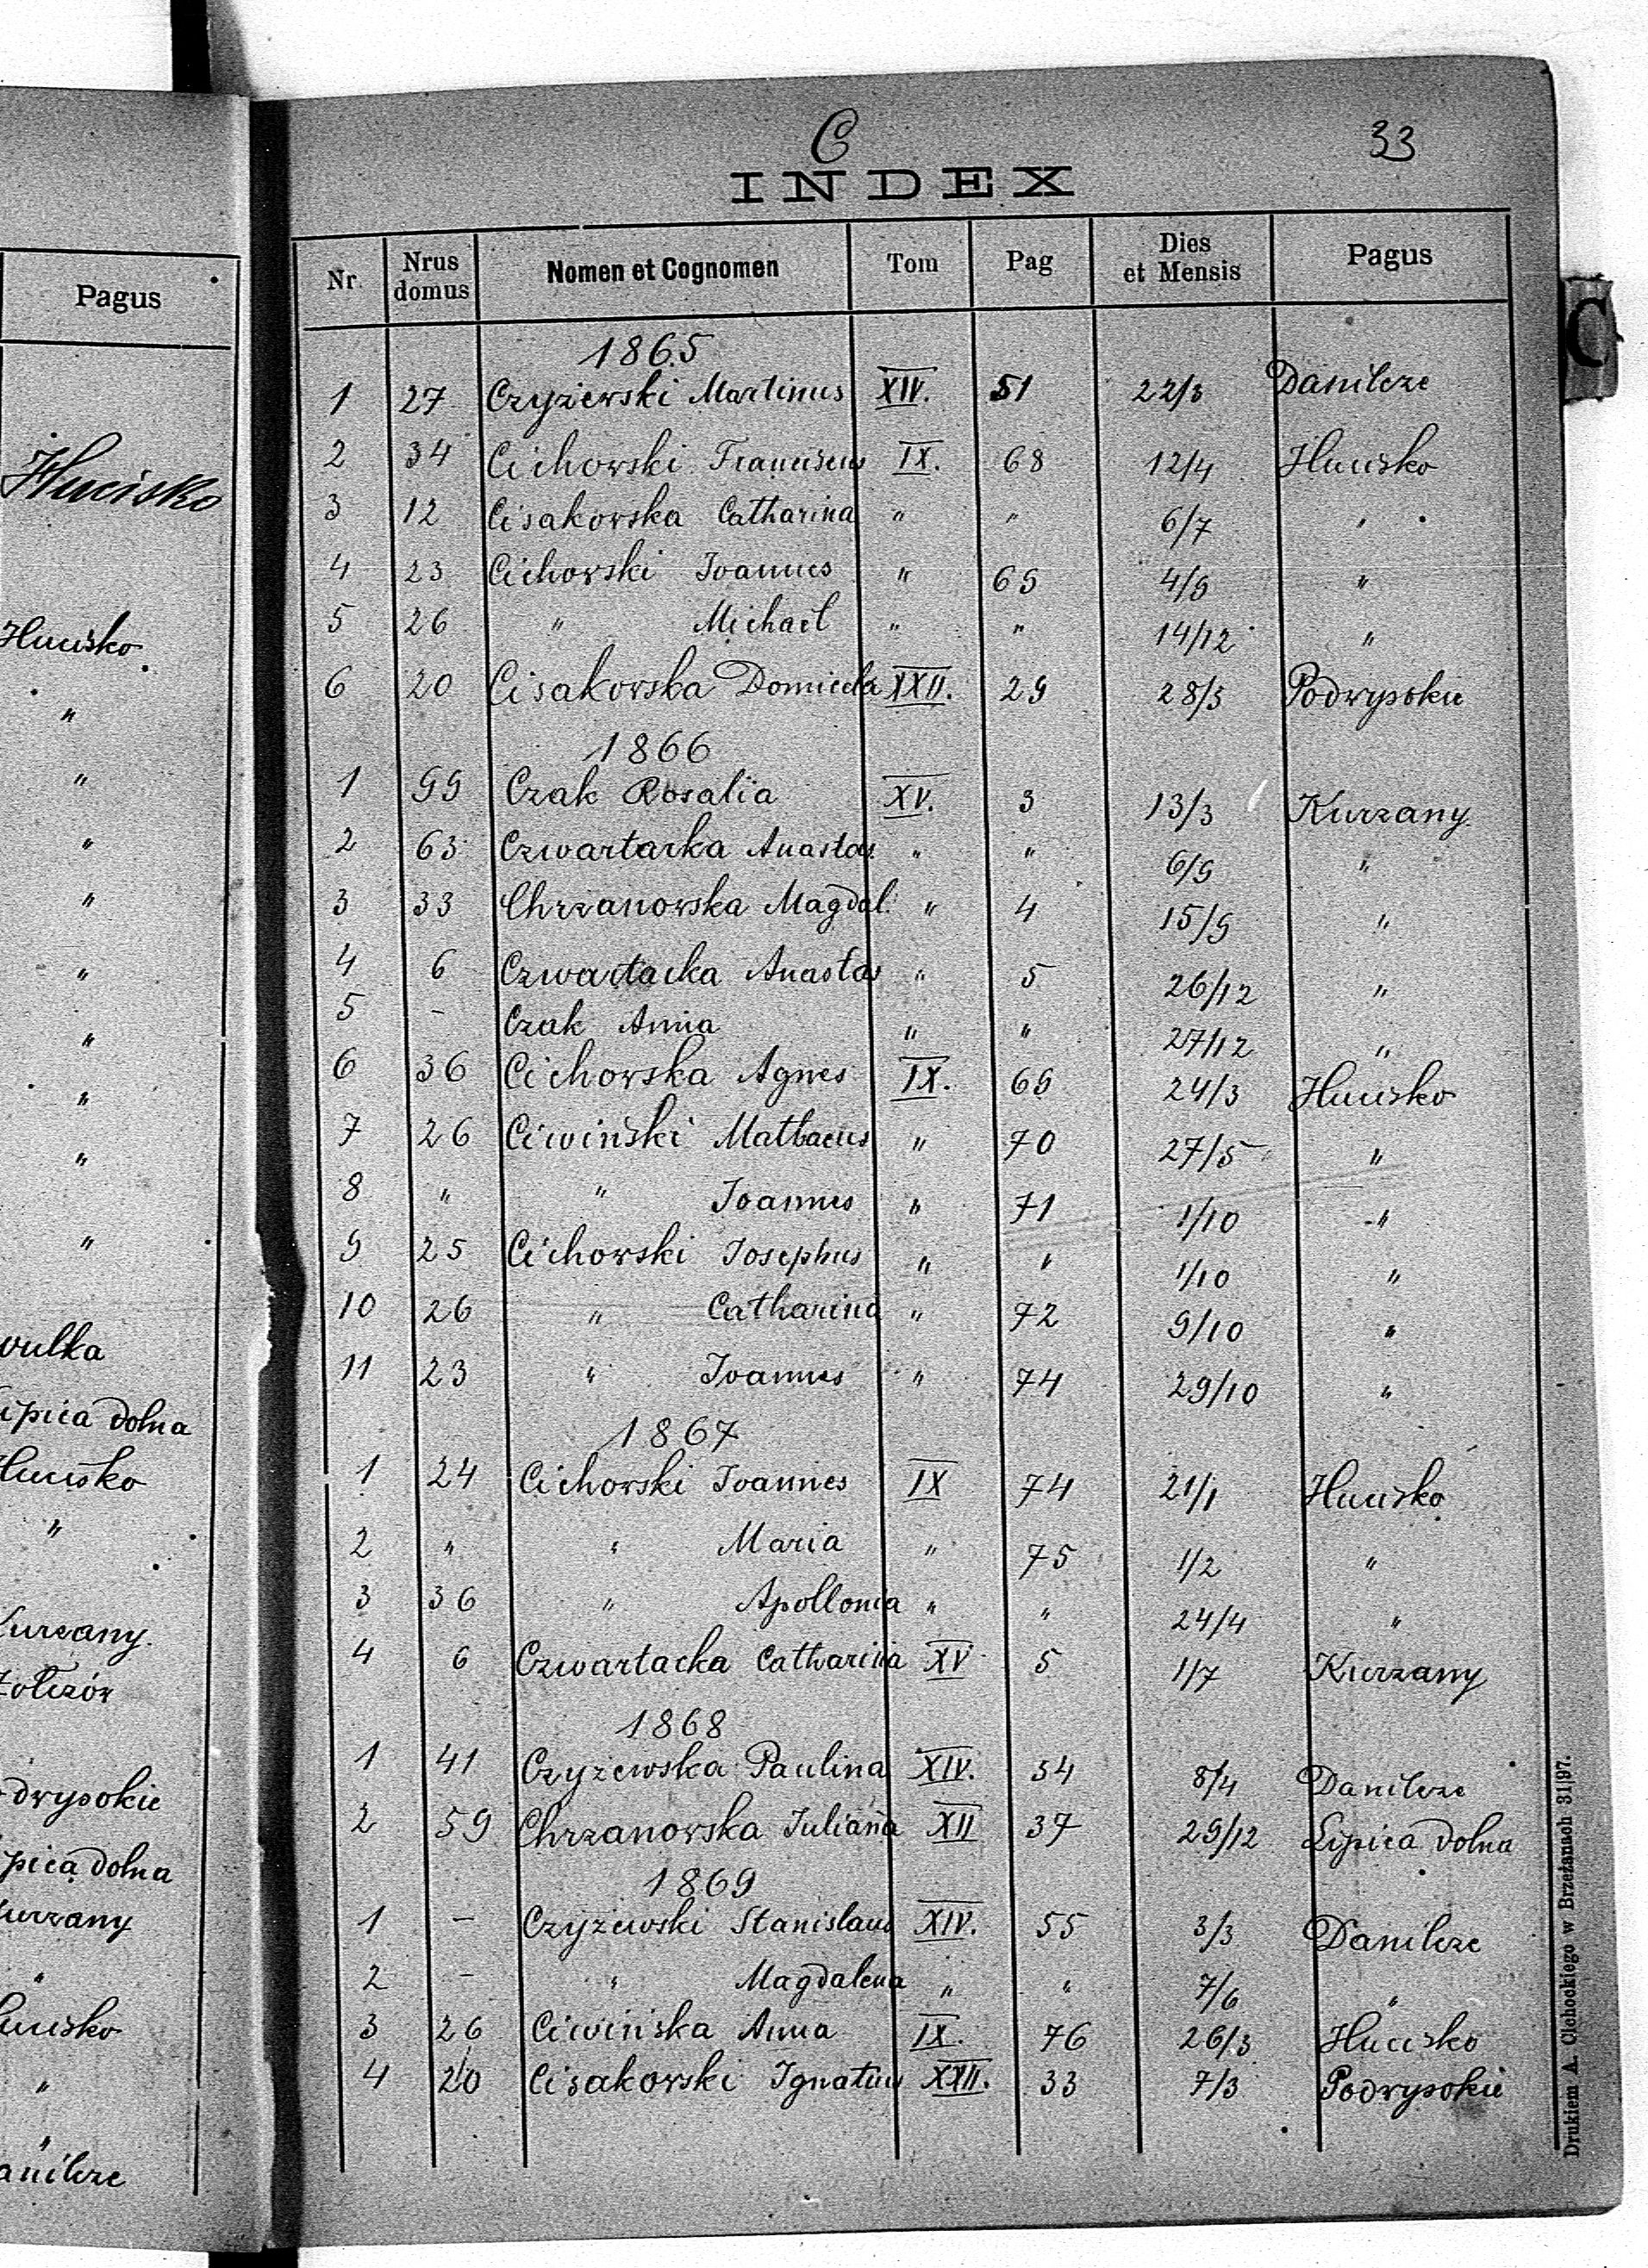 Pagus
Hucisko
Hucisko
"
"
"
"
"
"
"
"
"
Lipica dolna
Hucisko
"
Kurzany.
Podwysokie
Lipica dolna
Kurzany
"
Hucisko
"
"
Danilcze
C
33
INDEX
Nr. Nrus domus Nomen et Cognomen Tom Pag Dies et Mensis Pagus
1865
1 27 Czyżewski Martinus XIV. 51 22/3 Danilcze
2 34 Cichowski Franciscus IX. 68 12/4 Hucisko
3 12 Cisakowska Catharina " " 6/7 "
4 23 Cichowski Joannes " 69 4/9 "
5 26 " Michael " " 14/12 "
6 20 Cisakowska Domicela XXII. 29 28/3 Podwysokie
1866
1 99 Czak Rosalia XV. 3 13/3 Kurzany
2 63 Czwartacka Anastas. " " 6/9 "
3 33 Chrzanowska Magdal. " 4 15/9 "
4 6 Czwartacka Anastas " 5 26/12 "
5 - Czak Anna " " 27/12 "
6 36 Cichowska Agnes IX. 69 24/3 Hucisko
7 26 Ciwiński Mathaeus " 70 27/5 "
8 " " Joannes " 71 1/10 "
9 25 Cichowski Josephus " " 1/10 "
10 26 " Catharina " 72 9/10 "
11 23 " Joannes " 74 29/10 "
1867
1 24 Cichowski Joannes IX 74 21/1 Hucisko
2 " " Maria " 75 1/2 "
3 36 " Apollonia " " 24/4 "
4 6 Czwartacka Catharina XV 5 1/7 Kurzany
1868
1 41 Czyżewska Paulina XIV. 54 8/4 Danilcze
2 59 Chrzanowska Juliana XII 37 29/12 Lipica dolna
1869
1 - Czyżewski Stanislaus XIV. 55 3/3 Danilcze
2 - " Magdalena " " 7/6 "
3 26 Ciwińska Anna IX. 76 26/3 Hucisko
4 20 Cisakowski Ignatius XXII. 33 7/3 Podwysokie
C
Drukiem A. Cichockiego w Brzeżanach 31|97.